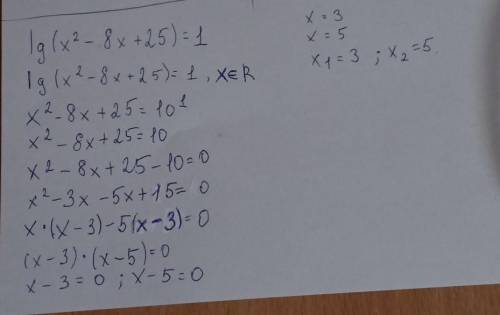 lg(x² - 8x + 25) = 1
lg(x² - 8x + 25) = 1, x∈R
x² - 8x + 25 = 10¹
x² - 8x + 25 = 10
x² - 8x + 25 - 10 = 0
x² - 3x - 5x + 15 = 0
x · (x - 3) - 5(x - 3) = 0
(x - 3) · (x - 5) = 0
x - 3 = 0 ; x - 5 = 0
x = 3
x = 5
x₁ = 3 ; x₂ = 5.